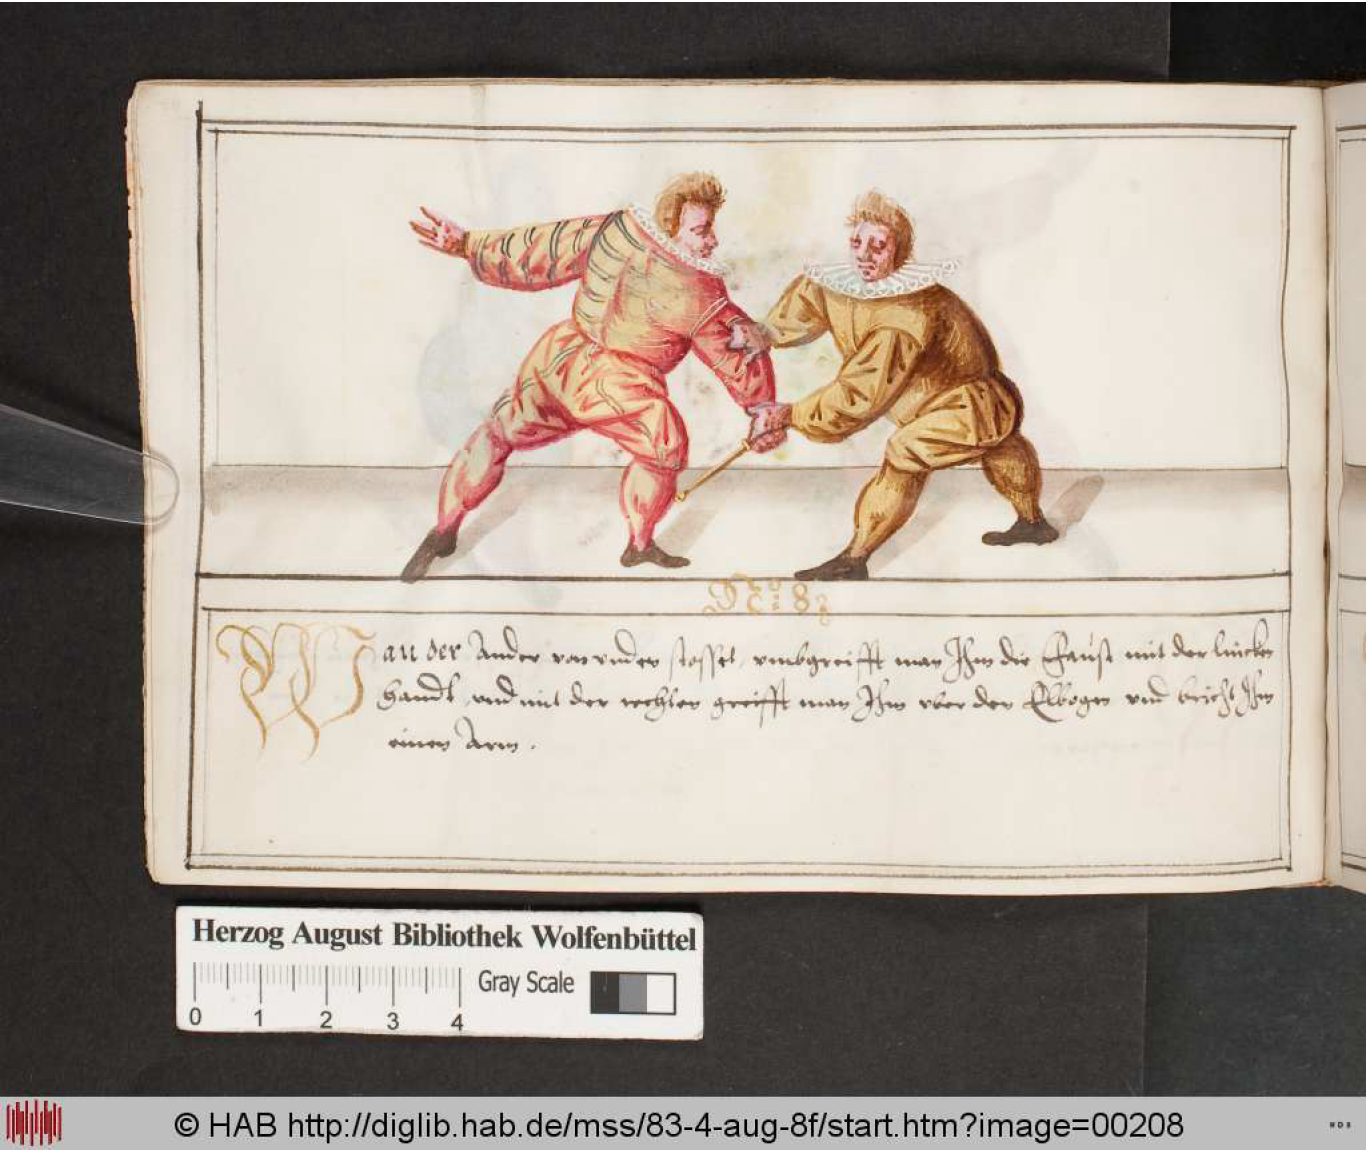 No: 82
Wan der Ander von vnden stosset, vmbgreifft man Ihm die Faust mit der lincken
handt, vnd mit der rechten greifft man Ihm vber den Elbogen vnd bricht Ihm
einen Arm.
Herzog August Bibliothek Wolfenbüttel
Gray Scale
0 1 2 3 4
© HAB http://diglib.hab.de/mss/83-4-aug-8f/start.htm?image=00208